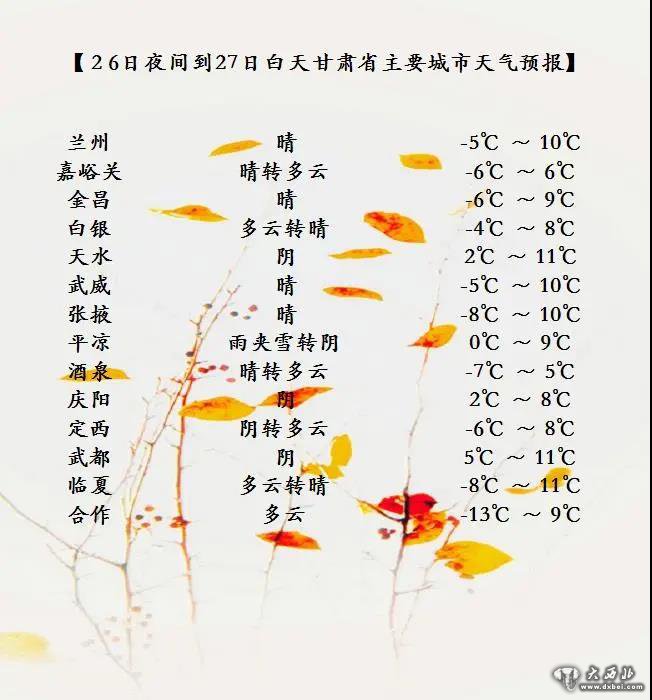 【26日夜间到27日白天甘肃省主要城市天气预报】
兰州 晴 -5℃ ～ 10℃
嘉峪关 晴转多云 -6℃ ～ 6℃
金昌 晴 -6℃ ～ 9℃
白银 多云转晴 -4℃ ～ 8℃
天水 阴 2℃ ～ 11℃
武威 晴 -5℃ ～ 10℃
张掖 晴 -8℃ ～ 10℃
平凉 雨夹雪转阴 0℃ ～ 9℃
酒泉 晴转多云 -7℃ ～ 5℃
庆阳 阴 2℃ ～ 8℃
定西 阴转多云 -6℃ ～ 8℃
武都 阴 5℃ ～ 11℃
临夏 多云转晴 -8℃ ～ 11℃
合作 多云 -13℃ ～ 9℃
大西北
www.dxbei.com